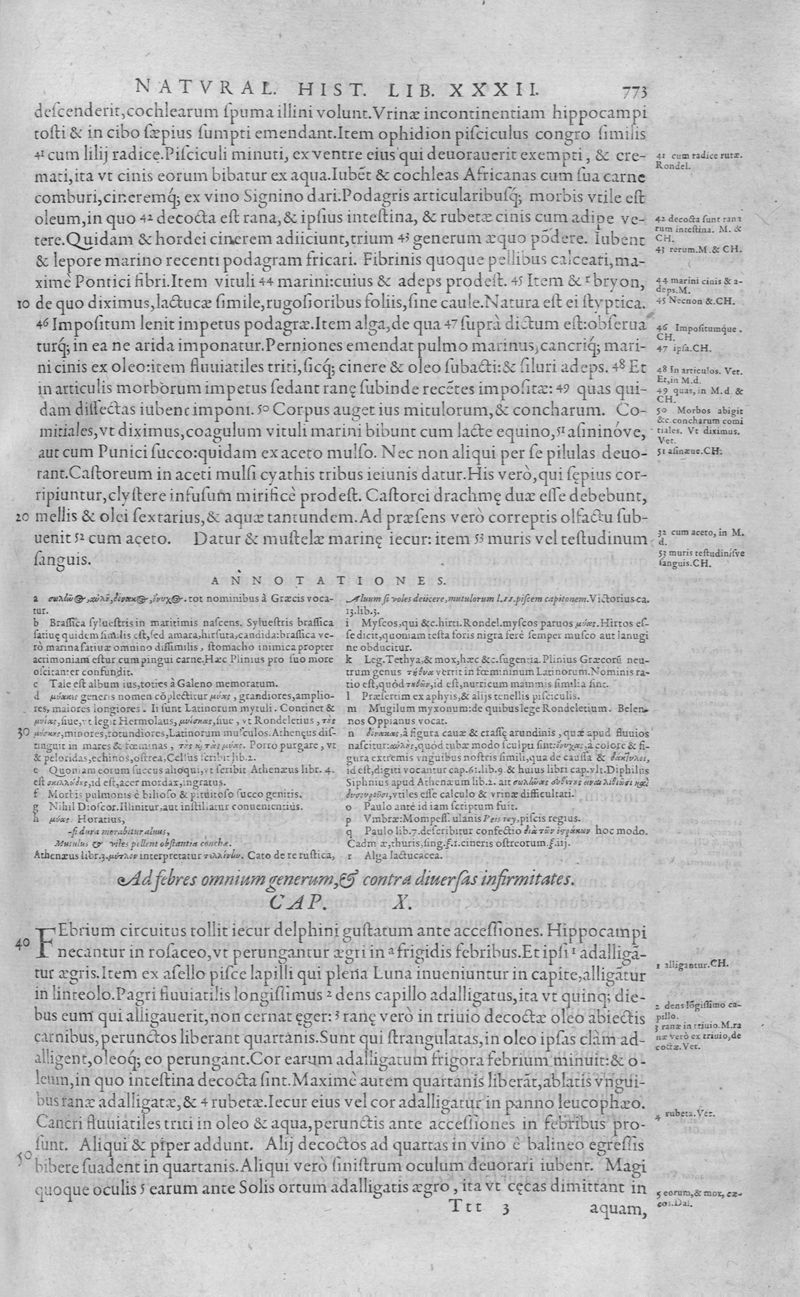 NATVRAL. HIST. LIB. XXXII. 773
descenderit, cochlearum spuma illini volunt. Vrinæ incontinentiam hippocampi
tosti & in cibo sæpius sumpti emendant. Item ophidion pisciculus congro similis
41 cum lilij radice. Pisciculi minuti, ex ventre eius qui deuorauerit exempti, & cre-
mati, ita vt cinis eorum bibatur ex aqua. Iubēt & cochleas Africanas cum sua carne
comburi, cineremq; ex vino Signino dari. Podagris articularibusq; morbis vtile est
oleum, in quo 42 decocta est rana, & ipsius intestina, & rubetæ cinis cum adipe ve-
tere. Quidam & hordei cinerem adiiciunt, trium 43 generum æquo pōdere. Iubent
& lepore marino recenti podagram fricari. Fibrinis quoque pellibus calceati, ma-
ximè Pontici fibri. Item vituli 44 marini: cuius & adeps prodest. 45 Item & r bryon,
10 de quo diximus, lactucæ simile, rugosioribus foliis, sine caule. Natura est ei styptica.
46 Impositum lenit impetus podagræ. Item alga, de qua 47 suprà dictum est: obserua
turq; in ea ne arida imponatur. Perniones emendat pulmo marinus, cancriq; mari-
ni cinis ex oleo: item fluuiatiles triti, sicq; cinere & oleo subacti: & siluri adeps. 48 Et
in articulis morborum impetus sedant ranę subinde recētes impositæ: 49 quas qui-
dam dissectas iubent imponi. 50 Corpus auget ius mitulorum, & concharum. Co-
mitiales, vt diximus, coagulum vituli marini bibunt cum lacte equino, 51 asininóve,
aut cum Punici succo: quidam ex aceto mulso. Nec non aliqui per se pilulas deuo-
rant. Castoreum in aceti mulsi cyathis tribus ieiunis datur. His verò, qui sępius cor-
ripiuntur, clystere infusum mirificè prodest. Castorei drachmę duæ esse debebunt,
20 mellis & olei sextarius, & aquæ tantundem. Ad præsens verò correptis olfactu sub-
uenit 52 cum aceto. Datur & mustelæ marinę iecur: item 53 muris vel testudinum
sanguis.
41 cum radice rutæ.
Rondel.
42 decocta sunt rana
rum intestina. M. &
CH.
43 rerum. M. & CH.
44 marini cinis & a-
deps. M.
45 Necnon &. CH.
46 Impositumque.
CH.
47 ipsa. CH.
48 In articulos. Vet.
Et, in M. d.
49 quas, in M. d &
CH.
50 Morbos abigit
&c. concharum comi
tiales. Vt diximus.
Vet.
51 asinæue. CH.
52 cum aceto, in M.
d.
53 muris testudinisve
sanguis. CH.
ANNOTATIONES.
a tot nominibus à Græcis voca-
tur.
b Brassica syluestris in maritimis nascens. Syluestris brassica
satiuę quidem similis est, sed amara, hirsuta, candida: brassica ve-
rò marina satiuæ omnino dissimilis, stomacho inimica propter
acrimoniam estur cum pingui carne. Hæc Plinius pro suo more
oscitanter confundit.
c Tale est album ius, toties à Galeno memoratum.
d μύακας generis nomen cōplectitur μύας, grandiores, amplio-
res, maiores longiores. Ii sunt Latinorum mytuli. Continet &
siue, vt legit Hermolaus, siue, vt Rondeletius,
30 minores, rotundiores, Latinorum musculos. Athenęus dis-
tinguit in mares & fœminas, Porro purgare, vt
& peloridas, echinos, ostrea, Celsus scribit lib. 2.
e Quoniam eorum succus alioqui, vt scribit Athenæus libr. 4.
est id est, acer mordax, ingratus.
f Morbis pulmonis è bilioso & pituitoso succo genitis.
g Nihil Dioscor. Illinitur, aut instillatur conuenientius.
h μύας Horatius,
-si dura morabitur aluus,
Mutulus & viles pellent obstantia conchæ.
Athenæus libr. 3. interpretatur Cato de re rustica,
Aluum si voles deiicere, mutulorum piscem capitonem. Victorius ca.
13. lib. 3.
i Myscos, qui &c. hirti. Rondel. myscos paruos μύας. Hirtos es-
se dicit, quoniam testa foris nigra ferè semper musco aut lanugi
ne obducitur.
k Leg. Tethya, & mox, hæc &c. sugentia. Plinius Græcorū neu-
trum genus vertit in fœmininum Latinorum. Nominis ra-
tio est, quòd id est, nutricum mammis similia sint.
l Præsertim ex aphyis, & alijs tenellis pisciculis.
m Mugilum myxonum: de quibus lege Rondeletium. Belen⁎
nos Oppianus vocat.
n à figura cauæ & crassę arundinis, quæ apud fluuios
nascitur: quòd tubæ modo sculpti sint: à colore & fi-
gura extremis vnguibus nostris simili, qua de caussa &
id est, digiti vocantur cap. 61. lib. 9. & huius libri cap. vlt. Diphilus
Siphnius apud Athenæum lib. 2. ait
vtiles esse calculo & vrinæ difficultati.
o Paulo antè id iam scriptum fuit.
p Vmbræ: Mompess. ulanis Peis rey, piscis regius.
q Paulo lib. 7. describitur confectio hoc modo.
Cadmiæ, thuris, sing. ʒ.i. cineris ostreorum. ʒ.iij.
r Alga lactucacea.
Ad febres omnium generum, & contra diuersas infirmitates.
CAP. X.
FEbrium circuitus tollit iecur delphini gustatum ante accessiones. Hippocampi
40 necantur in rosaceo, vt perungantur ægri in a frigidis febribus. Et ipsi 1 adalligā-
tur ægris. Item ex asello pisce lapilli qui plena Luna inueniuntur in capite, alligātur
in linteolo. Pagri fluuiatilis longissimus 2 dens capillo adalligatus, ita vt quinq; die-
bus eum qui alligauerit, non cernat ęger: 3 ranę verò in triuio decoctæ oleo abiectis
carnibus, perunctos liberant quartanis. Sunt qui strangulatas, in oleo ipsas clàm ad-
alligent, oleoq; eo perungant. Cor earum adalligatum frigora febrium minuit: & o-
leum, in quo intestina decocta sint. Maximè autem quartanis liberāt, ablatis vngui-
bus ranæ adalligatæ, & 4 rubetæ. Iecur eius vel cor adalligatur in panno leucophæo.
Cancri fluuiatiles triti in oleo & aqua, perunctis ante accessiones in febribus pro-
sunt. Aliqui & piper addunt. Alij decoctos ad quartas in vino è balineo egressis
50 bibere suadent in quartanis. Aliqui verò sinistrum oculum deuorari iubent. Magi
quoque oculis 5 earum ante Solis ortum adalligatis ægro, ita vt cęcas dimittant in
1 alligantur. CH.
2 dens lōgissimo ca-
pillo.
3 ranæ in triuio. M. ra
næ verò ex triuio, de
coctæ. Vet.
4 rubeta. Vet.
5 eorum, & mox, cæ-
cos. Dal.
Ttt 3 aquam,